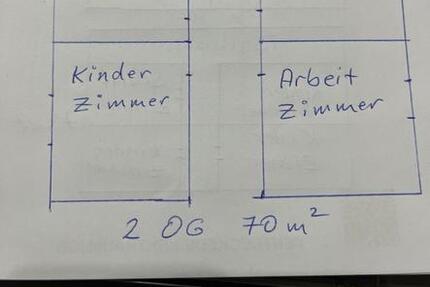 Kinder
Zimmer
Arbeit
Zimmer
2 OG 70 m²